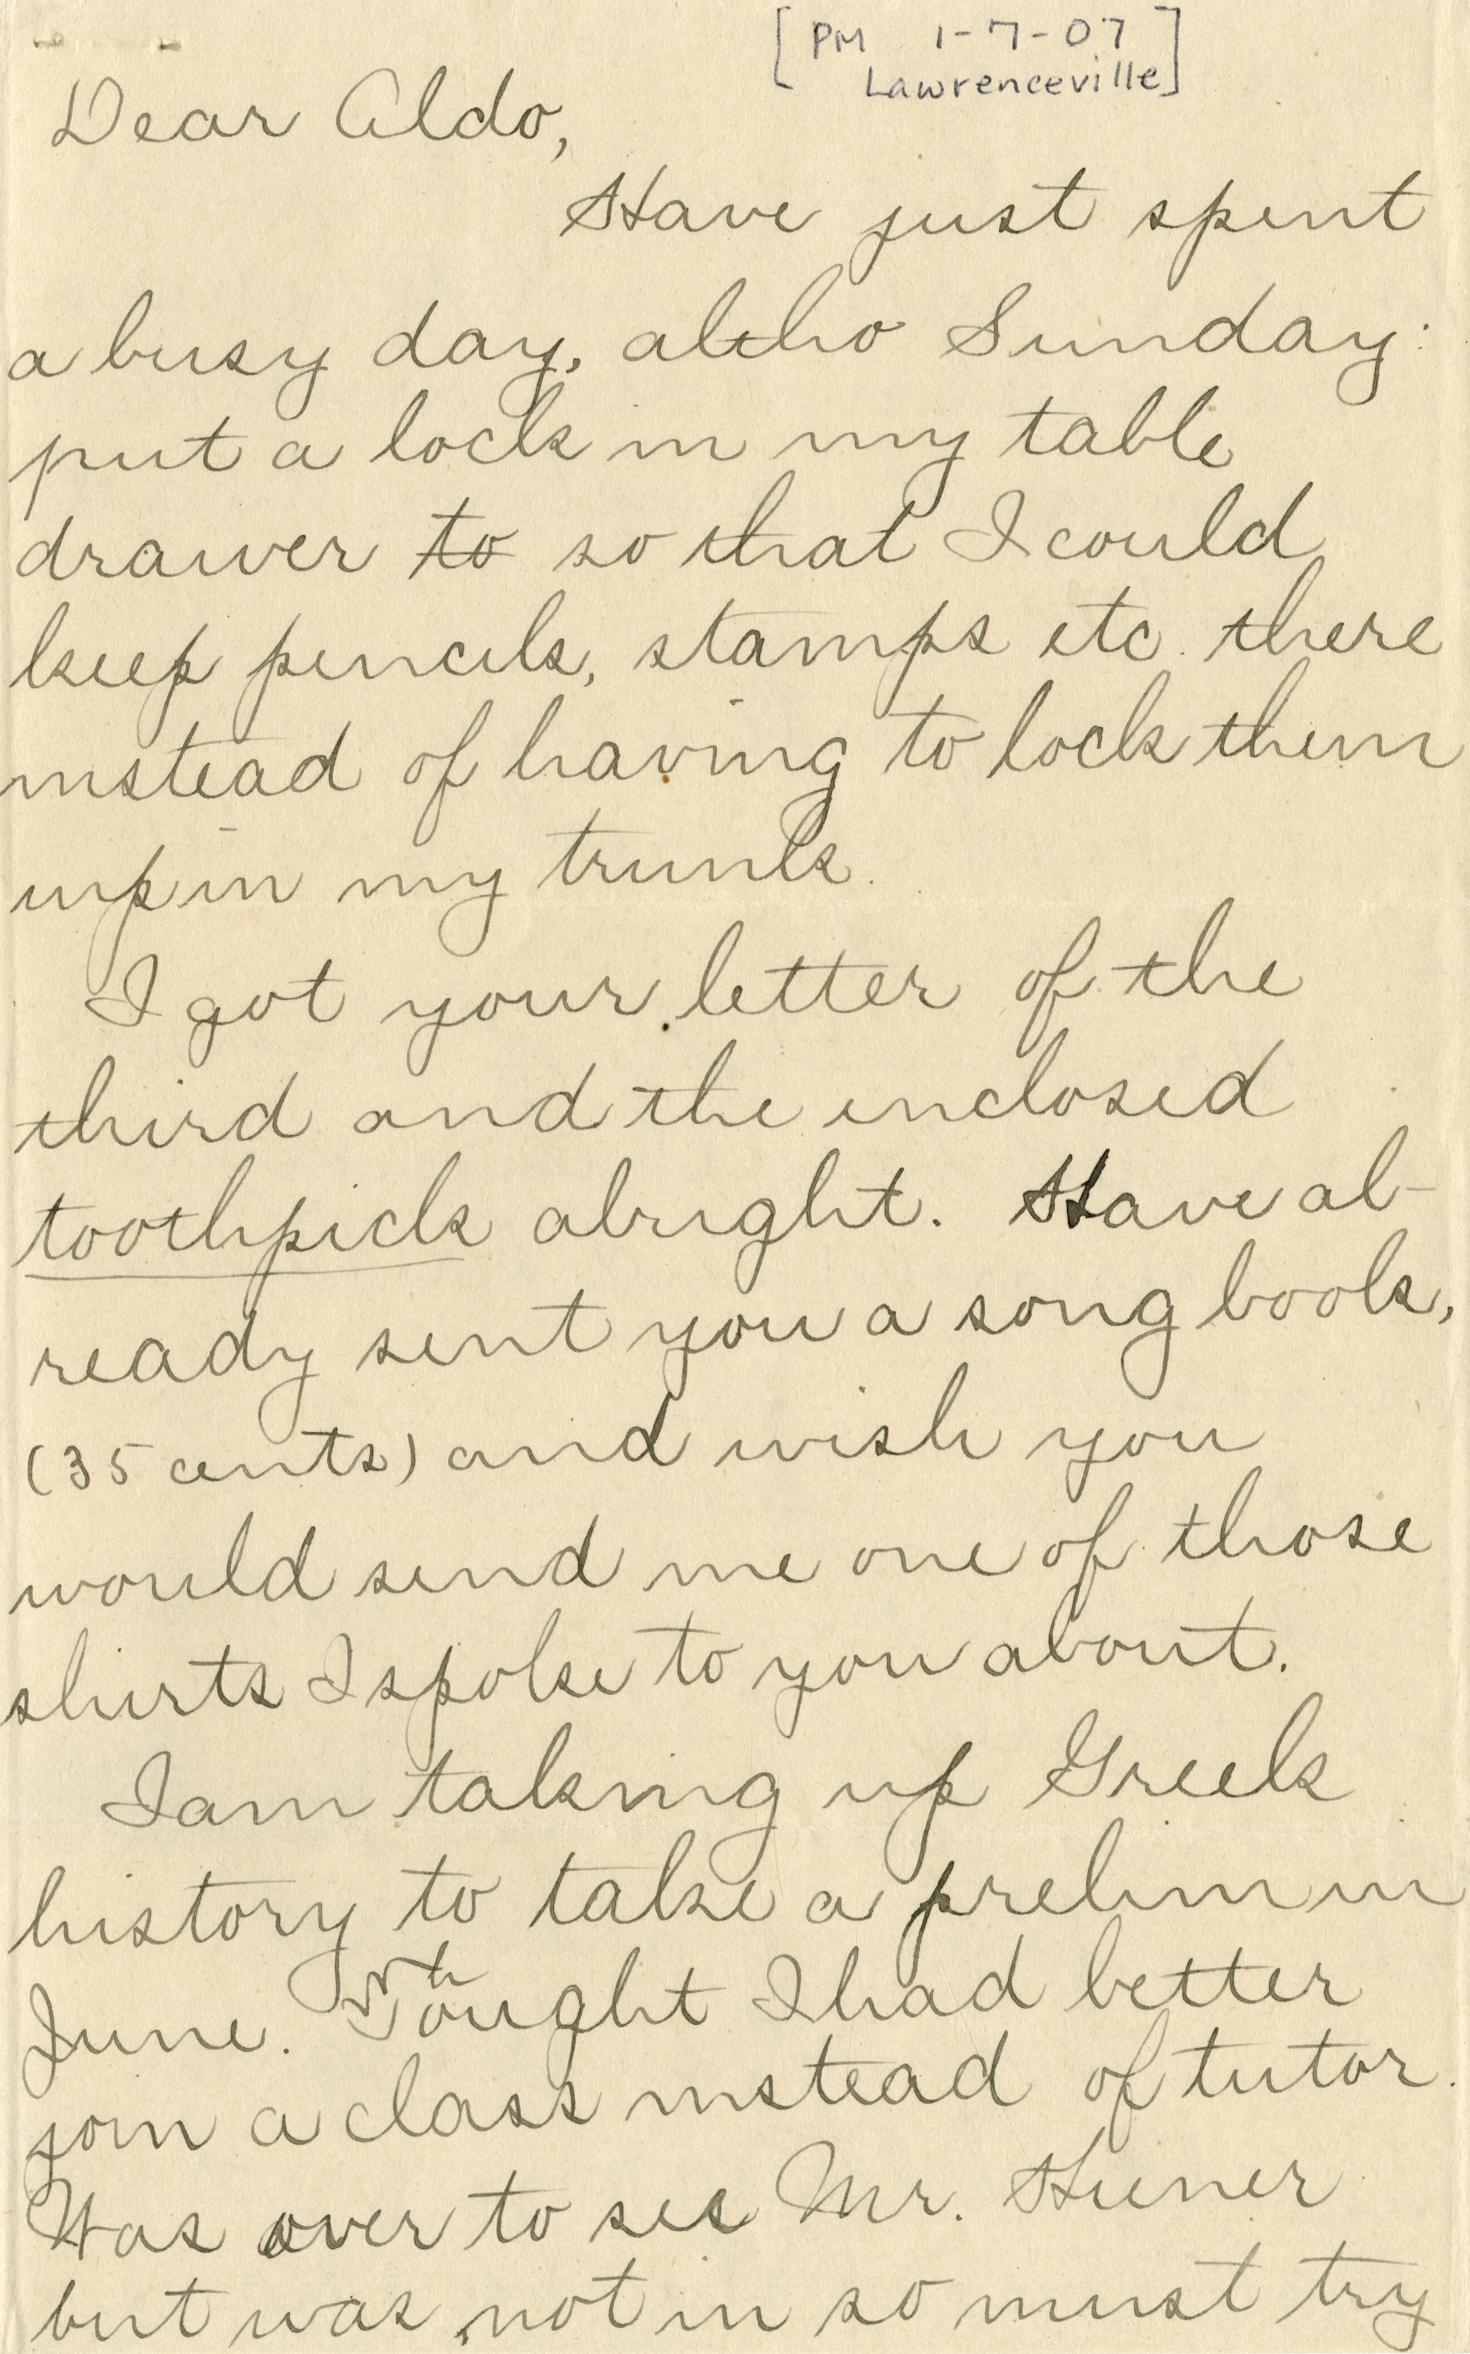 [PM 1-7-07
Lawrenceville]
Dear Aldo,
Have just spent
a busy day, altho Sunday:
put a lock in my table
drawer ~~to~~ so that I could
keep pencils, stamps etc. there
instead of having to lock them
up in my trunk.
I got your letter of the
third and the enclosed
toothpick alright. Have al-
ready sent you a song book,
(35 cents) and wish you
would send me one of those
shirts I spoke to you about.
I am taking up Greek
history to take a prelim in
June. Thought I had better
join a class instead of tutor.
Was over to see Mr. Huner
but was not in so must try